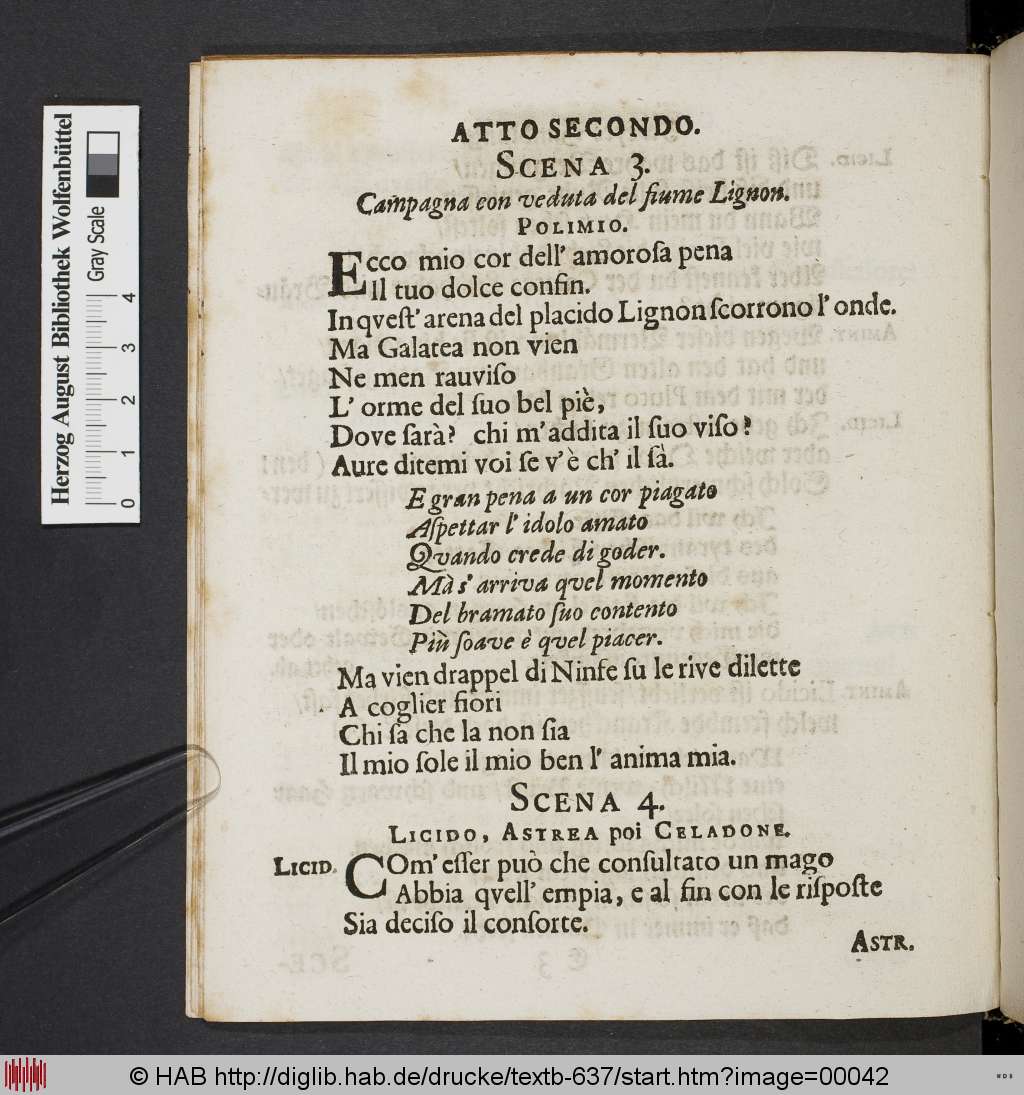 ATTO SECONDO.
SCENA 3.
Campagna con veduta del fiume Lignon.
POLIMIO.
Ecco mio cor dell' amoroſa pena
Il tuo dolce confin.
In qveſt' arena del placido Lignon ſcorrono l' onde.
Ma Galatea non vien
Ne men rauviſo
L' orme del ſuo bel piè,
Dove ſarà? chi m' addita il ſuo viſo?
Aure ditemi voi ſe v' è ch' il sà.
E gran pena a un cor piagato
Aſpettar l' idolo amato
Qvando crede di goder.
Mà s' arriva qvel momento
Del bramato ſuo contento
Più ſoave è qvel piacer.
Ma vien drappel di Ninfe ſu le rive dilette
A coglier fiori
Chi ſa che la non ſia
Il mio ſole il mio ben l' anima mia.
SCENA 4.
LICIDO, ASTREA poi CELADONE.
LICID. COm' eſſer può che conſultato un mago
Abbia qvell' empia, e al fin con le riſpoſte
Sia deciſo il conſorte.
ASTR.
Herzog August Bibliothek Wolfenbüttel
Gray Scale
0 1 2 3 4
© HAB http://diglib.hab.de/drucke/textb-637/start.htm?image=00042